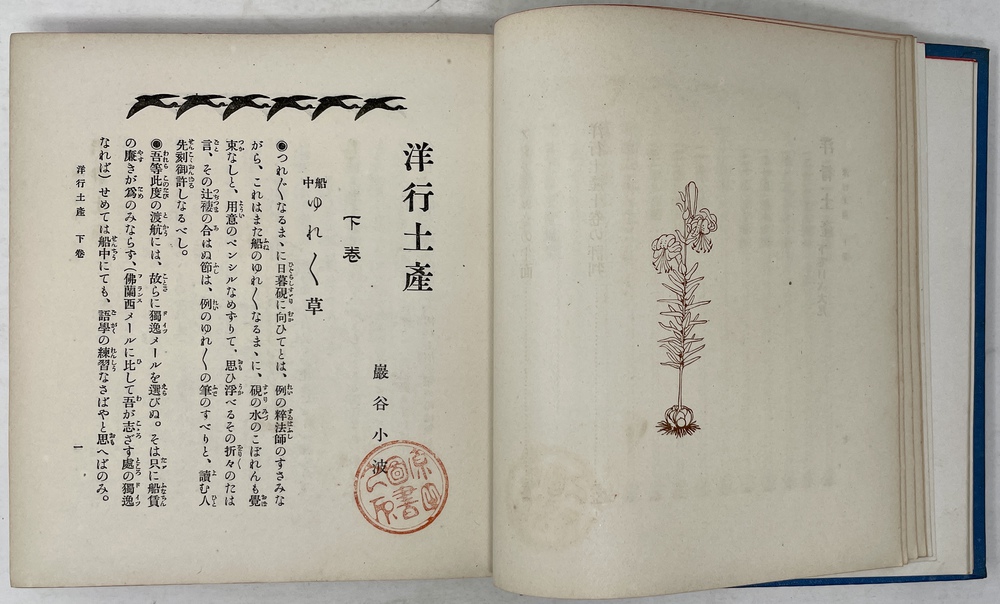 洋行土產
下卷
巖谷小波
船中ゆれ〱草
◉つれ〲なるまゝに日暮硯に向ひてとは、例の粹法師のすさみな
がら、これはまた船のゆれ〱なるまゝに、硯の水のこぼれんも覺
束なしと、用意のペンシルなめずりて、思ひ浮べるその折々のたは
言、その辻褄の合はぬ節は、例のゆれ〱の筆のすべりと、讀む人
先刻御許しなるべし。
◉吾等此度の渡航には、故らに獨逸メールを選びぬ。そは只に船賃
の廉きが爲のみならず、（佛蘭西メールに比して吾が志ざす處の獨逸
なれば）せめては船中にても、語學の練習なさばやと思へばのみ。
洋行土產 下卷
一
圖書